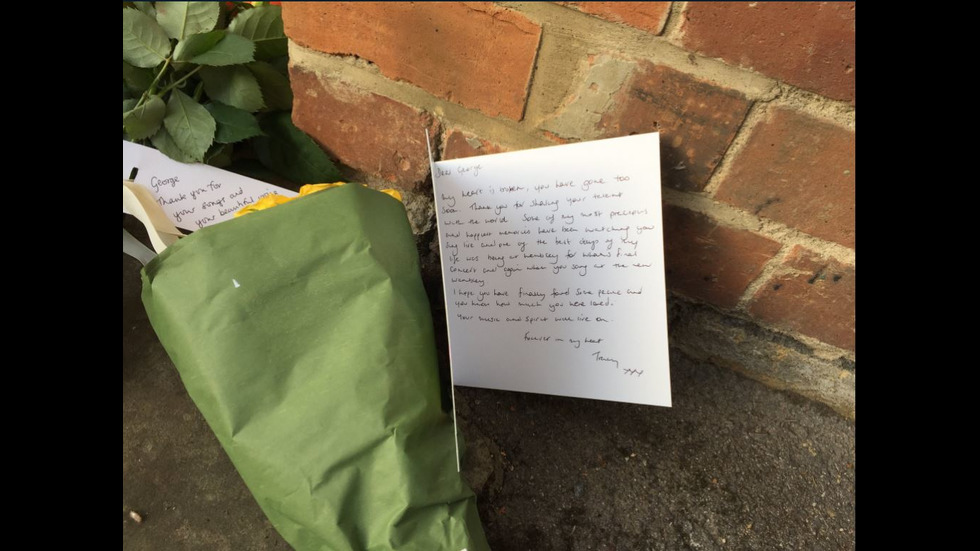 George
Thank you for
your songs and
your beautiful voice
Dear George
My heart is broken, you have gone too
soon. Thank you for sharing your talent
with the world. Some of my most precious
and happiest memories have been watching you
sing live and one of the best days of my
life was being at wembley for wham's final
concert and again when you sang at the new
wembley
I hope you have finally found some peace and
you know how much you were loved.
Your music and spirit will live on.
Forever in my heart
Tracey
xxx